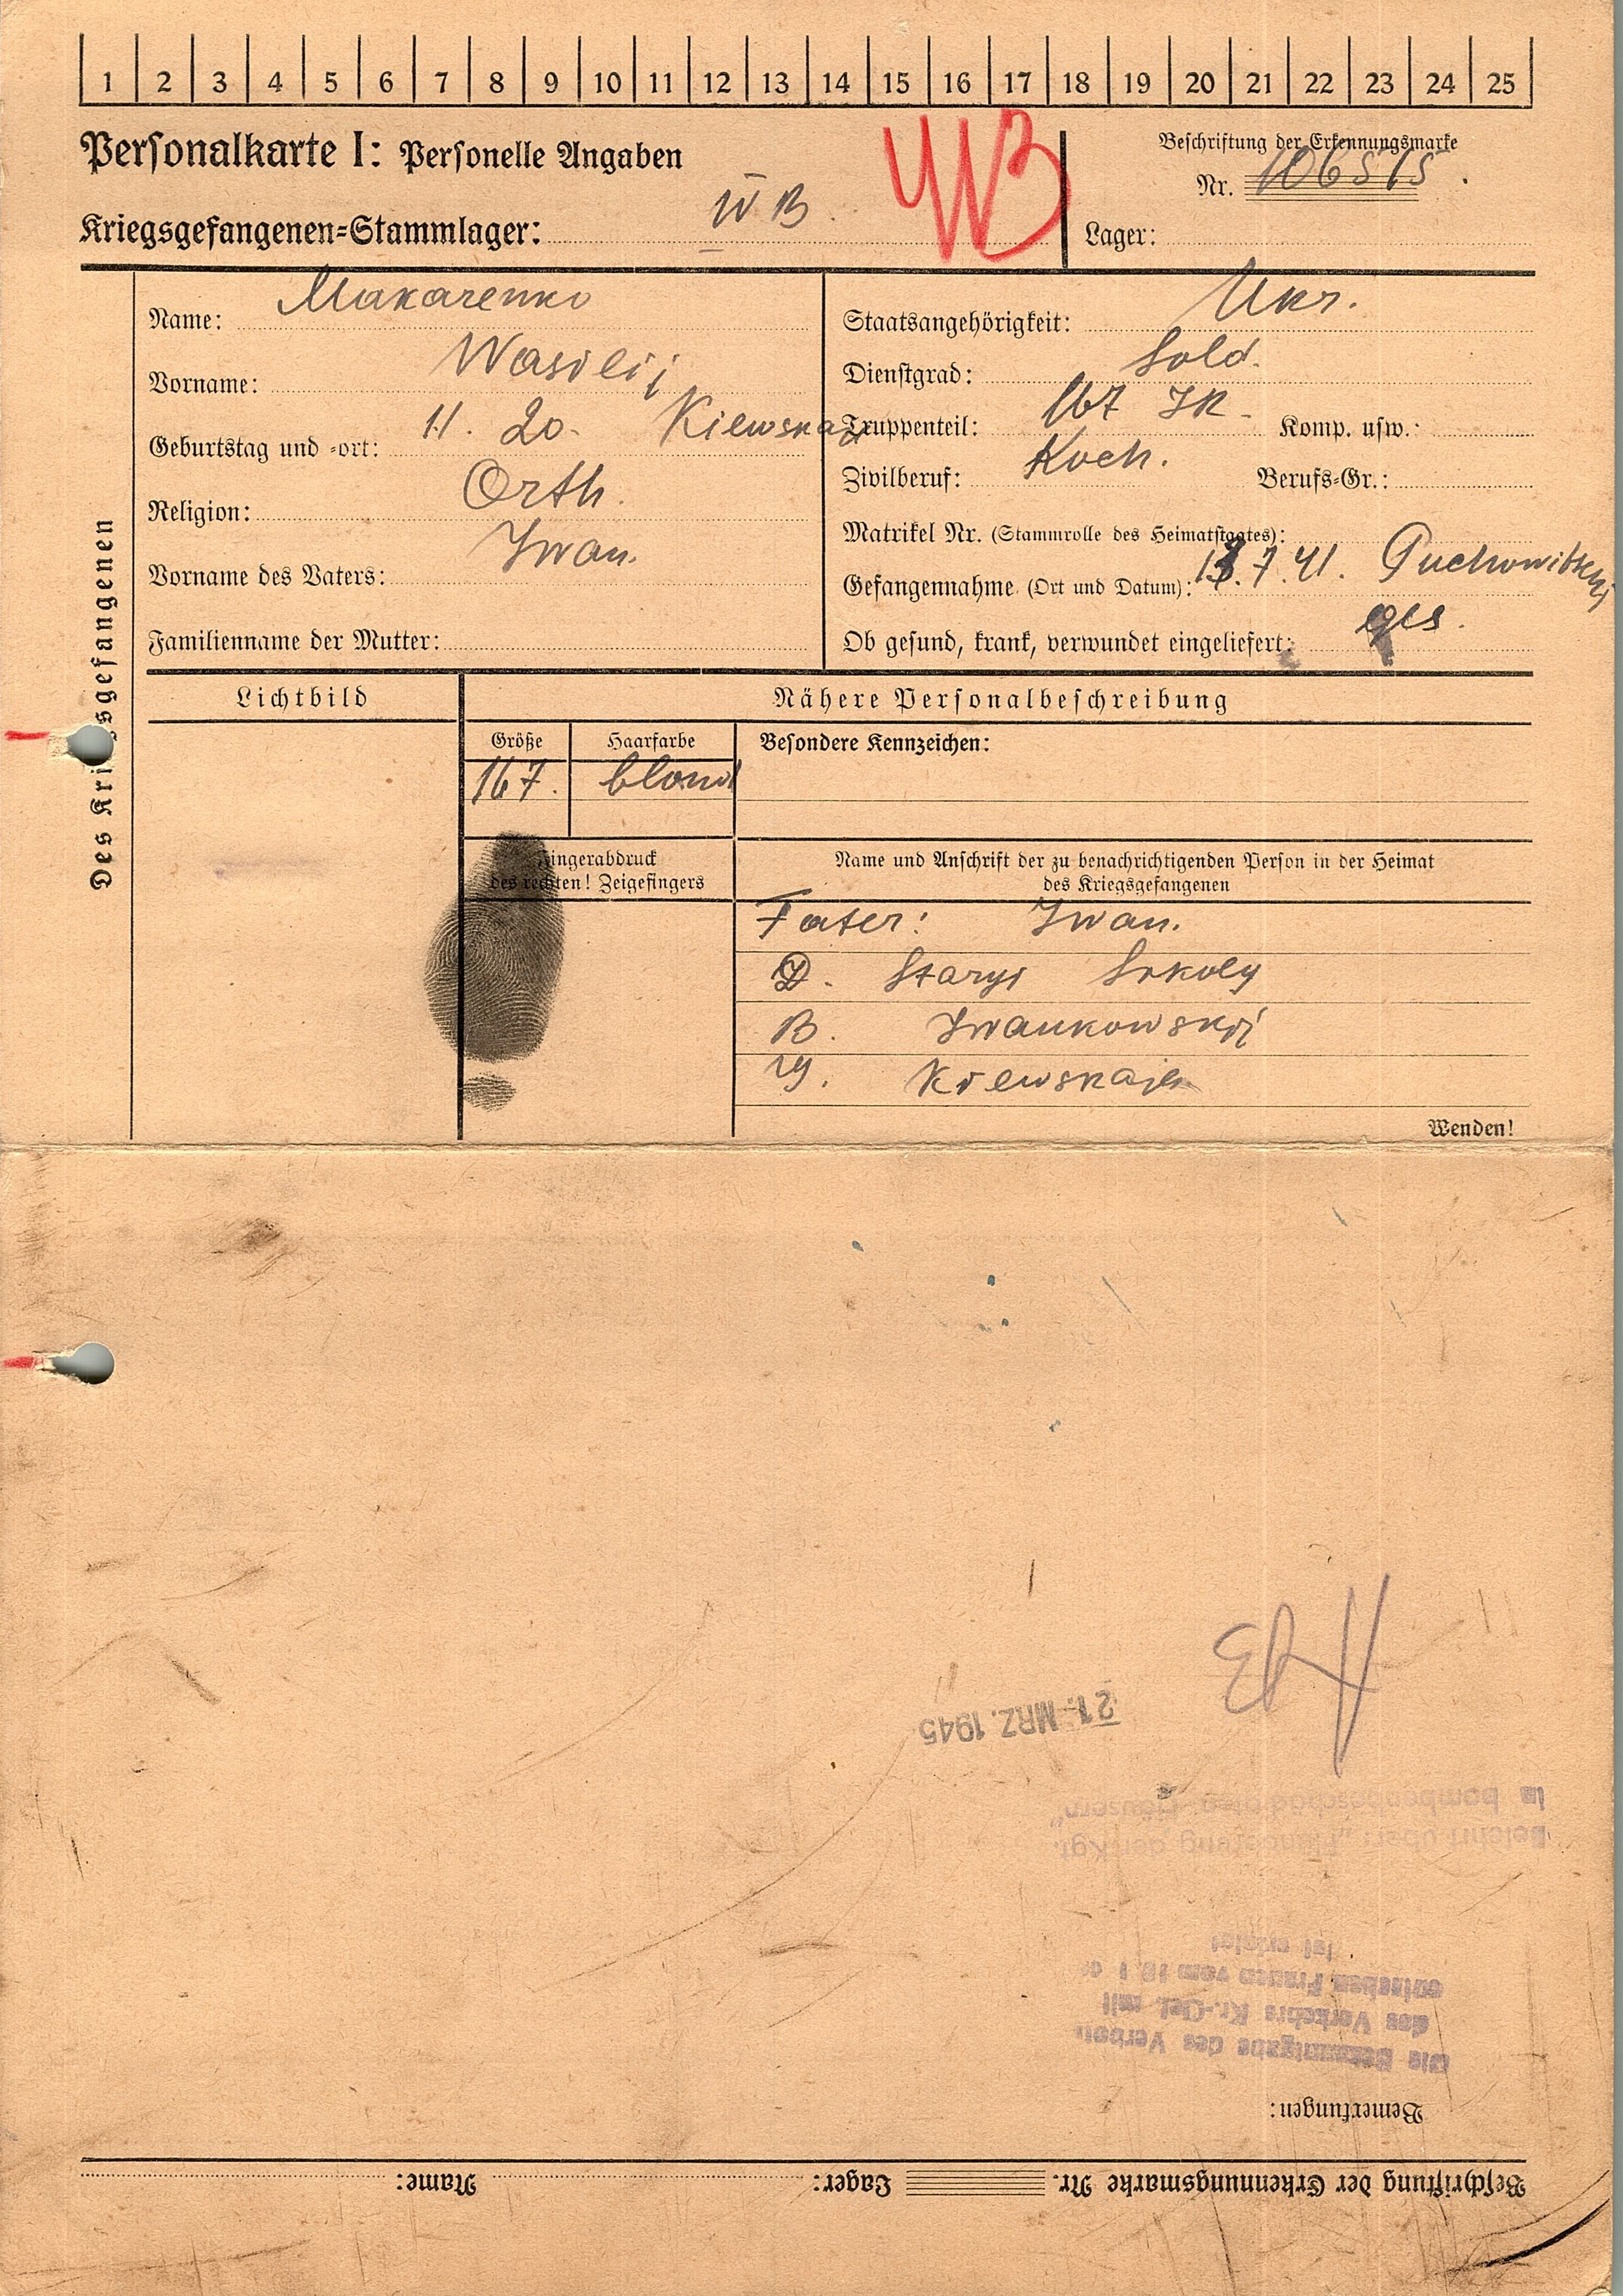 1 2 3 4 5 6 7 8 9 10 11 12 13 14 15 16 17 18 19 20 21 22 23 24 25
Personalkarte I: Personelle Angaben
Kriegsgefangenen-Stammlager: IV B
IVB
Beschriftung der Erkennungsmarke
Nr. 106515
Lager:
Des Kriegsgefangenen
Name: Makarenko
Vorname: Wasilij
Geburtstag und -ort: 11. 20. Kiewskaj
Religion: Orth.
Vorname des Vaters: Iwan.
Familienname der Mutter:
Staatsangehörigkeit: Ukr.
Dienstgrad: Sold.
Truppenteil: 167 IR. Komp. usw.:
Zivilberuf: Koch. Berufs-Gr.:
Matrikel Nr. (Stammrolle des Heimatstaates):
Gefangennahme (Ort und Datum): 13.7.41. Puchowitschi
Ob gesund, krank, verwundet eingeliefert: ges.
Lichtbild
Nähere Personalbeschreibung
Größe Haarfarbe Besondere Kennzeichen:
167. blond
Fingerabdruck
des rechten! Zeigefingers
Name und Anschrift der zu benachrichtigenden Person in der Heimat
des Kriegsgefangenen
Fater: Iwan.
D. Staryi Sokoly
B. Iwankowskoi
G. Kiewskaja
Wenden!
21. MRZ. 1945
Belehrt über: „Plünderung der Kgf.
in bombenbeschädigten Häusern"
Die Bekanntgabe des Verbots
des Verkehrs Kr.-Gef. mit
deutschen Frauen vom
ist erfolgt
Bemerkungen:
Beschriftung der Erkennungsmarke Nr. Lager: Name: